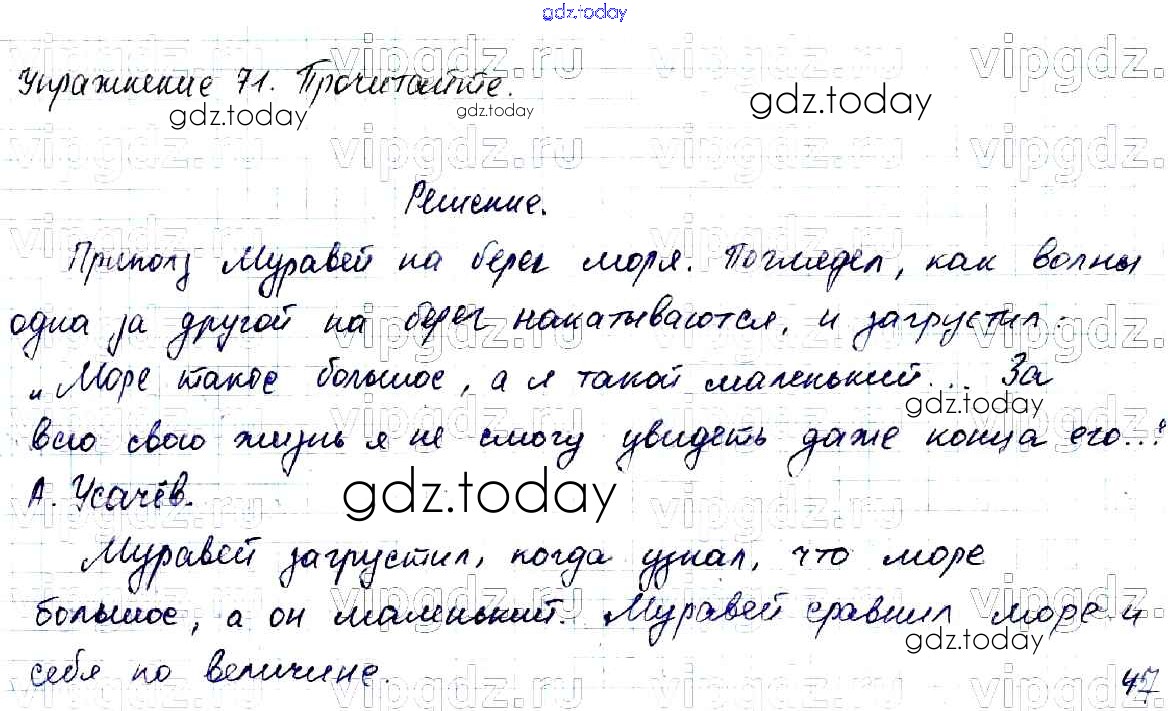 gdz.today
Упражнение 71. Прочитайте.
Решение.
Приполз Муравей на берег моря. Поглядел, как волны
одна за другой на берег накатываются, и загрустил.
„Море такое большое, а я такой маленький... За
всю свою жизнь я не смогу увидеть даже конца его..."
А. Усачёв.
Муравей загрустил, когда узнал, что море
большое, а он маленький. Муравей сравнил море и
себя по величине.
47